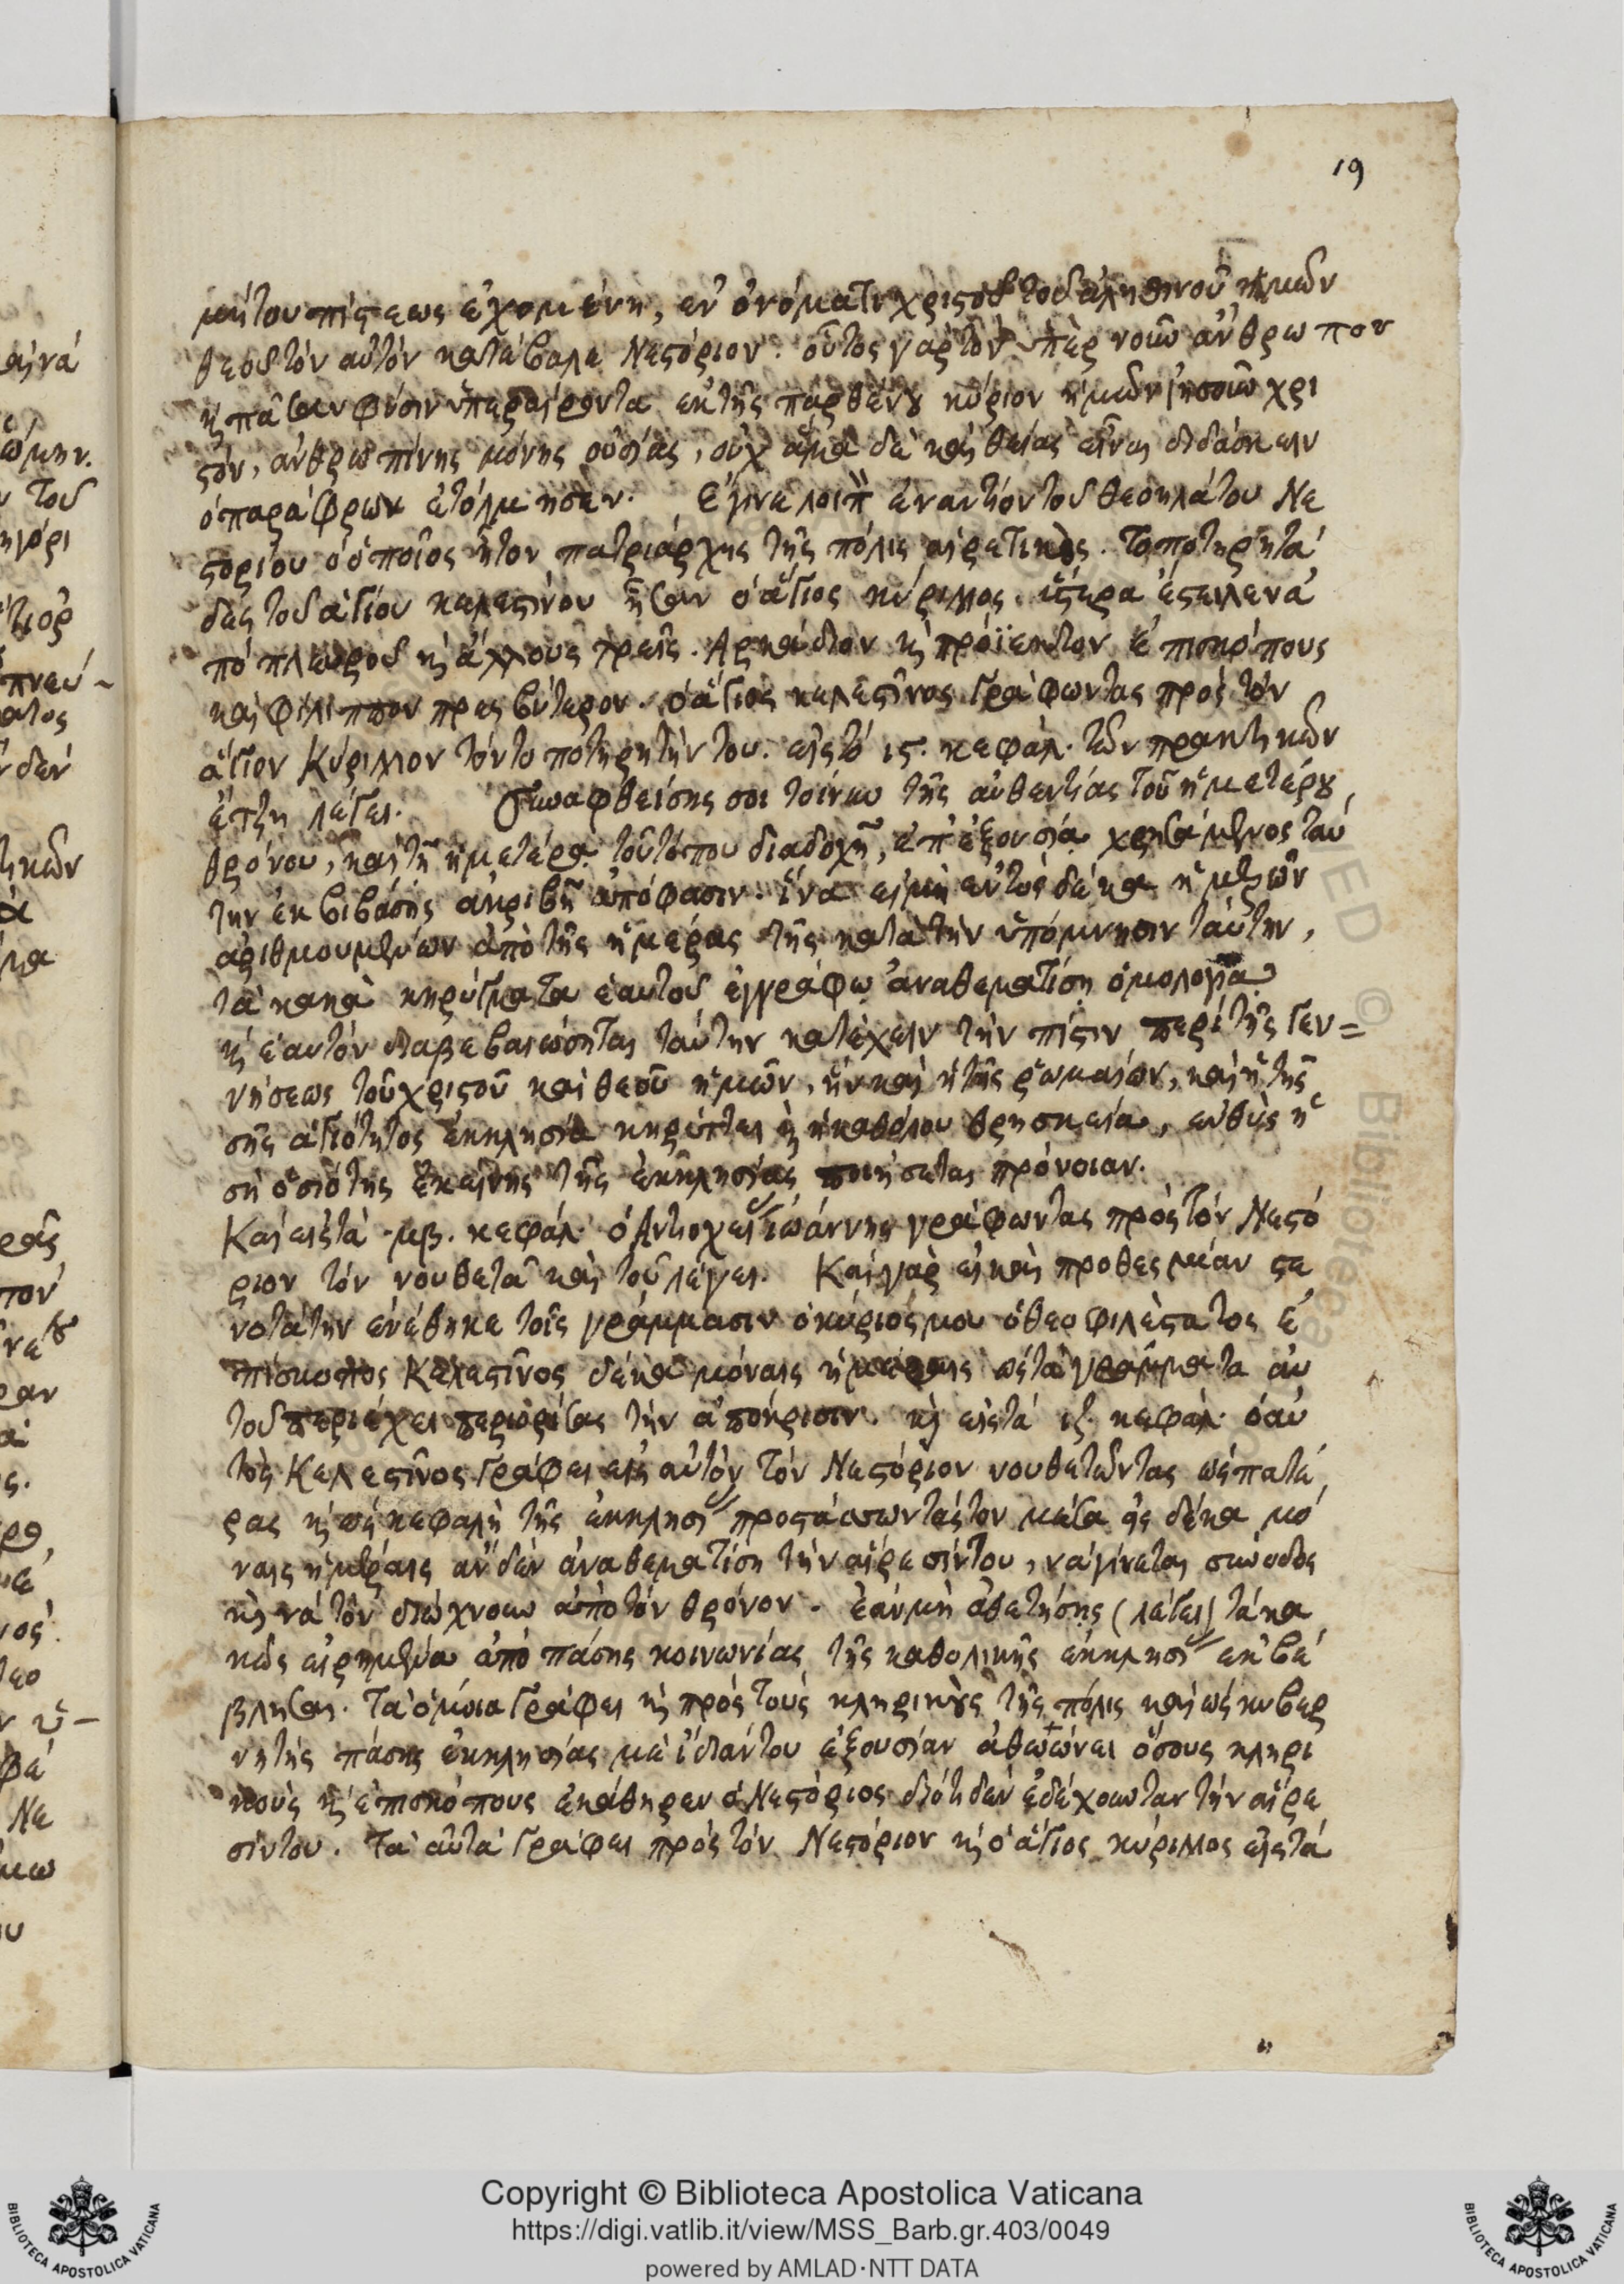 19
μήτου πίστεως ἐχομένη, ἐν ὀνόματι χριστοῦ τοῦ ἀληθινοῦ ἡμῶν
θεοῦ τὸν αὐτὸν κατέβαλε Νεστόριον. οὗτος γὰρ τὸν ὑπὲρ νοῦν ἀνθρώπου
κ πᾶσαν φύσιν ὑπεραίροντα ἐκ τῆς παρθένου κύριον ἡμῶν ἰησοῦν χρι
στόν, ἀνθρωπίνης μόνης οὐσίας, οὐχ ἅμα δὲ καὶ θείας εἶναι διδάσκειν
ὁ παράφρων ἐτόλμησεν. Ἔγινε λοιπ ἐναντίον τοῦ θεοηλάτου Νε
στορίου ὁ ὁποῖος ἦτον πατριάρχης τῆς πόλις αἱρετικὸς. Τοποτηρητά
δες τοῦ ἁγίου κελεστίνου ἦσαν ὁ ἅγιος κύριλλος. ὕστερα ἔστειλεν ἀ
πό πλευροῦ κ ἄλλους τρεῖς. Ἀρκάδιον κ πρόϊεκτον ἐπισκόπους
καὶ φίλιππον πρεσβύτερον. ὁ ἅγιος κελεστῖνος γράφωντας πρὸς τὸν
ἅγιον Κύριλλον τὸν τοποτηρητήν του. εἰς τὸ ιϛ. κεφάλ. τῶν πρακτικῶν
ἔτζη λέγει. Συναφθείσης σοι τοίνυν τῆς αὐθεντίας τοῦ ἡμετέρου
θρόνου, καὶ τῇ ἡμετέρᾳ τοῦ τόπου διαδοχῇ, ἐπ' ἐξουσίᾳ χρησάμενος ταύ
την ἐκβιβάσῃς ἀκριβῆ ἀπόφασιν. ἵνα εἰ μὴ ἐντὸς δέκα ἡμερῶν
ἀριθμουμένων ἀπὸ τῆς ἡμέρας τῆς κατὰ τὴν ὑπόμνησιν ταύτην,
τὰ κακὰ κηρύγματα ἑαυτοῦ ἐγγράφῳ ἀναθεματίσῃ ὁμολογίᾳ
κ ἑαυτὸν διαβεβαιώσηται ταύτην κατέχειν τὴν πίστιν περὶ τῆς γεν=
νήσεως τοῦ χριστοῦ καὶ θεοῦ ἡμῶν, ἣν καὶ ἡ τῆς ῥωμαίων, καὶ ἡ τῆς
σῆς ἁγιότητος ἐκκλησία κηρύττει κ ἡ καθόλου θρησκεία, εὐθὺς ἡ
σὴ ὁσιότης ἐκείνης τῆς ἐκκλησίας ποιήσεται πρόνοιαν.
Καὶ εἰς τὰ μβ. κεφάλ. ὁ Ἀντιοχεί ἰωάννης γράφωντας πρὸς τὸν Νεστό
ριον τὸν νουθετᾶ καὶ τοῦ λέγει. Καὶ γὰρ εἰ καὶ προθεσμίαν στε
νοτάτην ἐνέθηκε τοῖς γράμμασιν ὁ κύριός μου ὁ θεοφιλέστατος ἐ
πίσκοπος Κελεστῖνος δέκα μόναις ἡμέραις ὡς τὰ γράμματα αὐ
τοῦ περιέχει περιορίσας τὴν ἀπόκρισιν. κ εἰς τὰ ιζ. κεφάλ. ὁ αὐ
τὸς Κελεστῖνος γράφει εἰς αὐτὸν τὸν Νεστόριον νουθετῶντας ὡς πατέ
ρας κ ὡς κεφαλὴ τῆς ἐκκλησι προστάσσωντάς τον μέσα εἰς δέκα μό
ναις ἡμέραις ἂν δὲν ἀναθεματίσῃ τὴν αἵρεσίν του, νὰ γίνεται σύνοδος
κ νὰ τὸν διώχνουν ἀπὸ τὸν θρόνον. ἐὰν μὴ ἀθετήσῃς (λέγει) τὰ κα
κῶς εἰρημένα ἀπὸ πάσης κοινωνίας τῆς καθολικῆς ἐκκλησι ἐκβέ
βλησαι. Τὰ ὅμοια γράφει κ πρὸς τοὺς κληρικοὺς τῆς πόλις καὶ ὡς κυβερ
νητὴς πάσης ἐκκλησίας μὲ ἰδίαν του ἐξουσίαν ἀθωώνει ὅσους κληρι
κοὺς κ ἐπισκόπους ἐκάθηρεν ὁ Νεστόριος διότι δὲν ἐδέχουνταν τὴν αἵρε
σίν του. Τὰ αὐτὰ γράφει πρὸς τὸν Νεστόριον κ ὁ ἅγιος κύριλλος εἰς τὰ
Copyright © Biblioteca Apostolica Vaticana
https://digi.vatlib.it/view/MSS_Barb.gr.403/0049
powered by AMLAD·NTT DATA
BIBLIOTECA APOSTOLICA VATICANA
BIBLIOTECA APOSTOLICA VATICANA